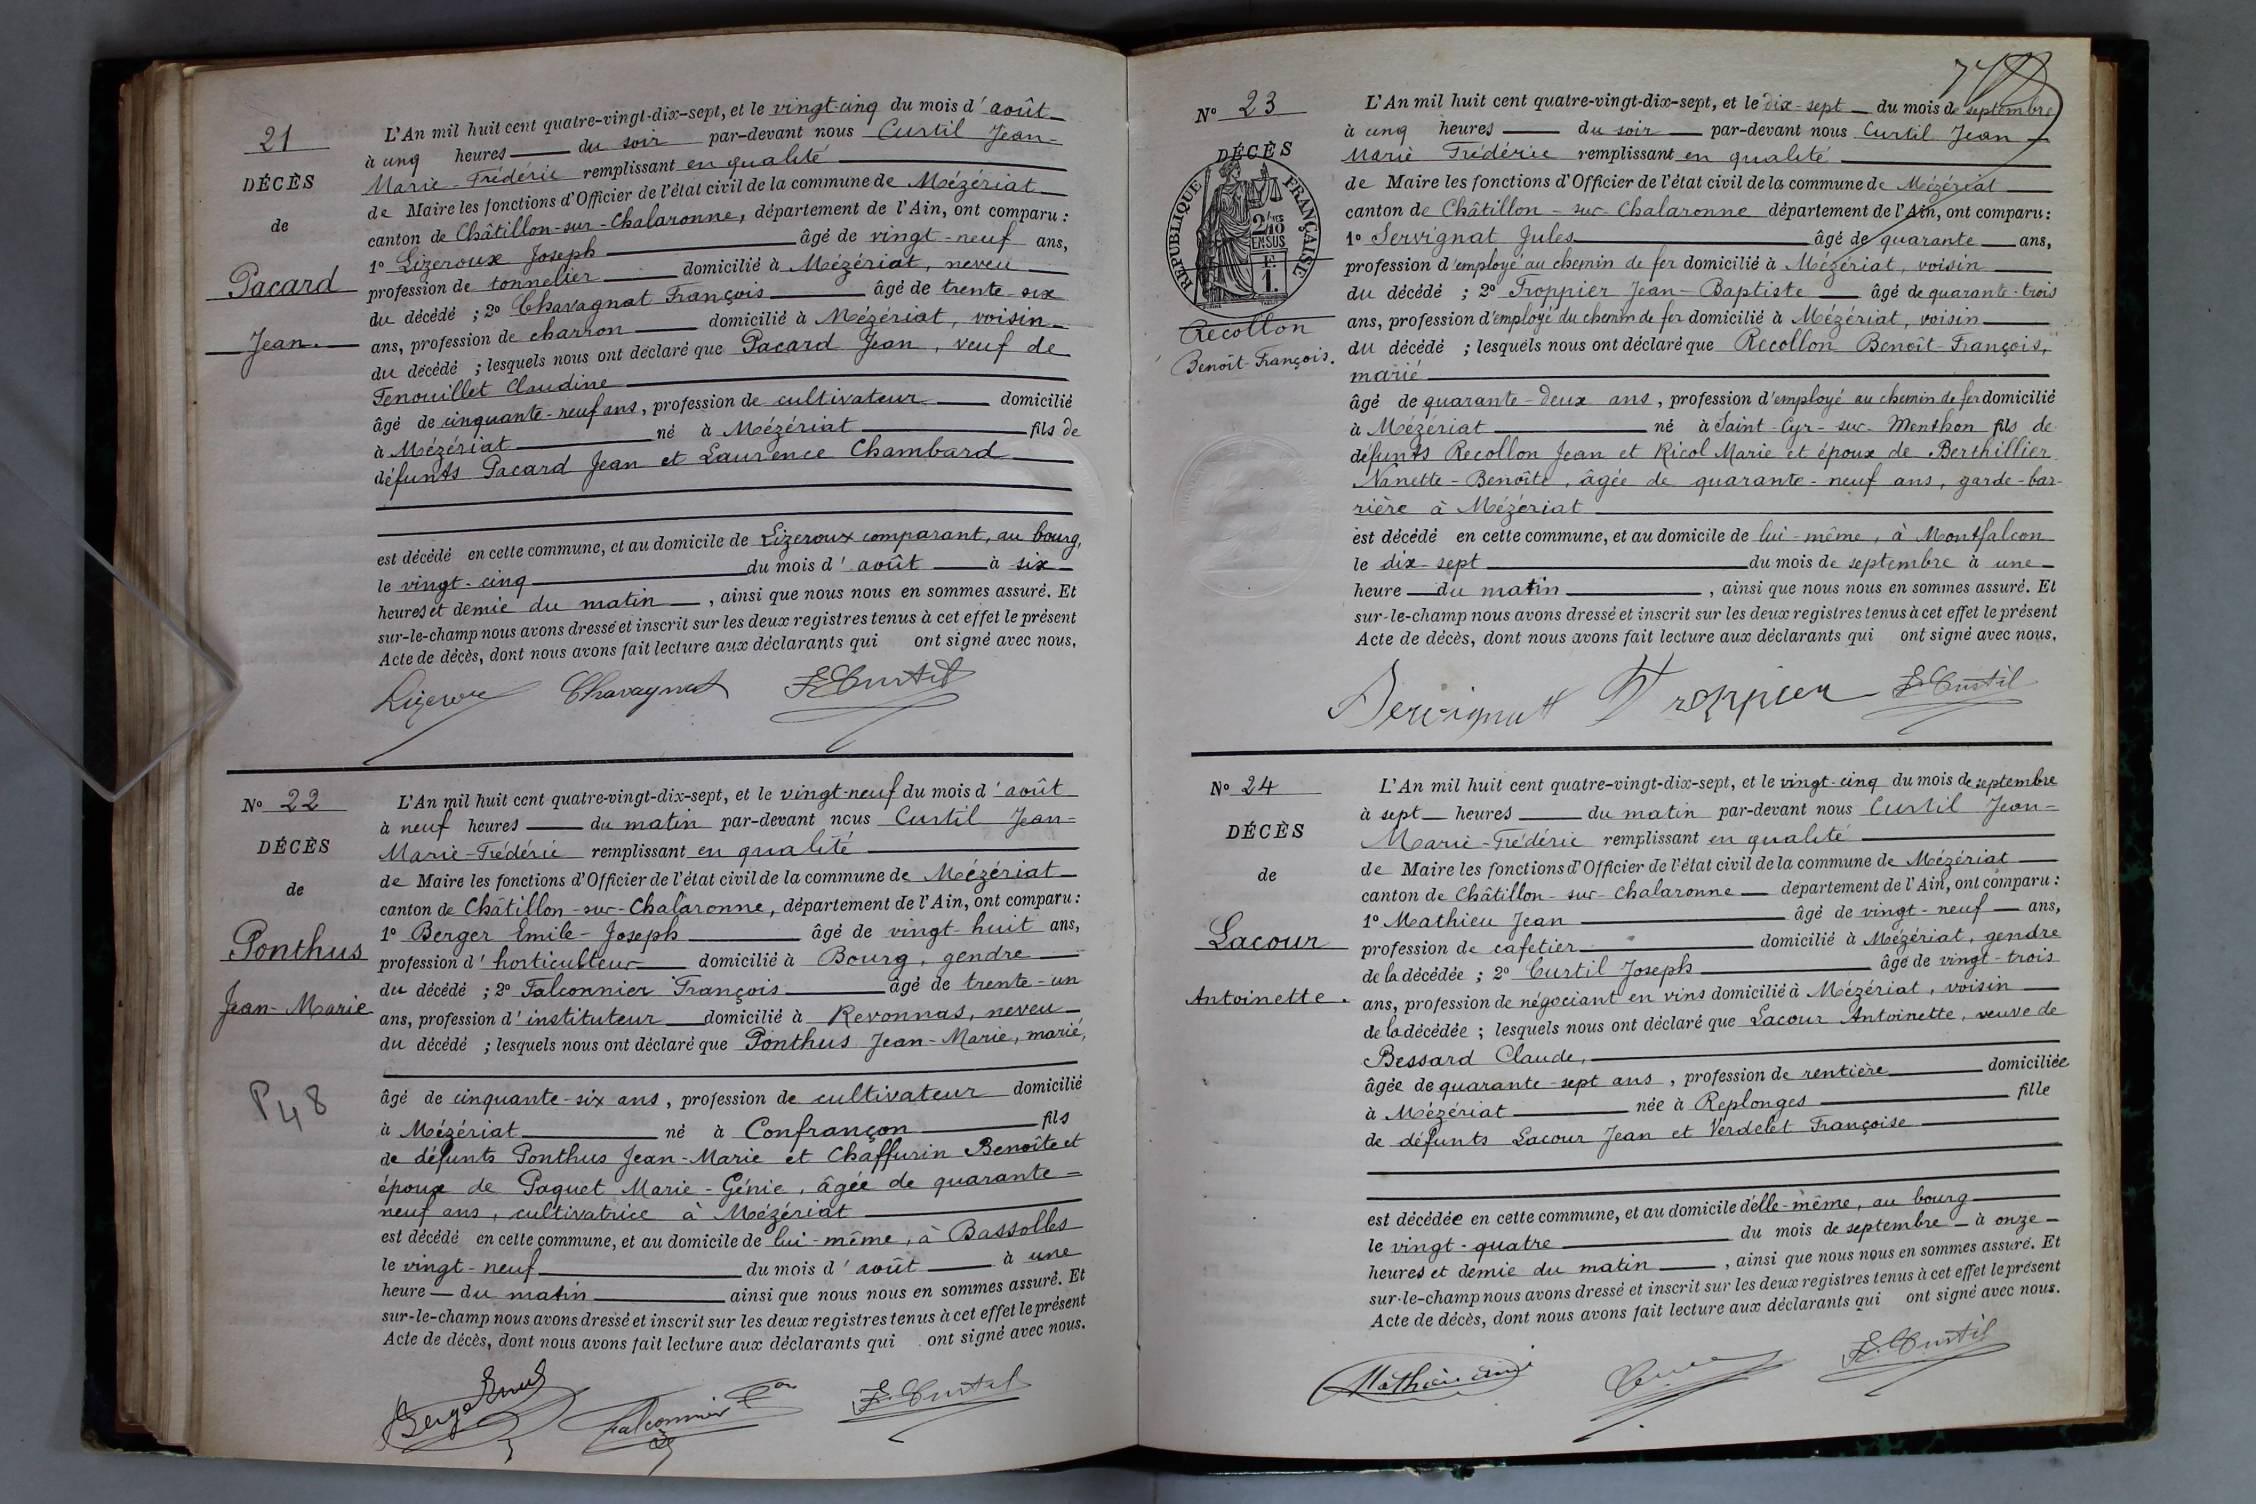 21
DÉCÈS
de
Pacard
Jean.
L'An mil huit cent quatre-vingt-dix-sept, et le vingt-cinq du mois d'août
à cinq heures du soir par-devant nous Curtil Jean-
Marie-Frédéric remplissant en qualité
de Maire les fonctions d'Officier de l'état civil de la commune de Mézériat
canton de Châtillon-sur-Chalaronne, département de l'Ain, ont comparu :
1º Lizeroux Joseph âgé de vingt-neuf ans,
profession de tonnelier domicilié à Mézériat, neveu
du décédé ; 2º Chavagnat François âgé de trente-six
ans, profession de charron domicilié à Mézériat, voisin
du décédé ; lesquels nous ont déclaré que Pacard Jean, veuf de
Fenouillet Claudine
âgé de cinquante-neuf ans, profession de cultivateur domicilié
à Mézériat né à Mézériat fils de
défunts Pacard Jean et Laurence Chambard
est décédé en cette commune, et au domicile de Lizeroux comparant, au bourg,
le vingt-cinq du mois d'août à six
heures et demie du matin, ainsi que nous nous en sommes assuré. Et
sur-le-champ nous avons dressé et inscrit sur les deux registres tenus à cet effet le présent
Acte de décès, dont nous avons fait lecture aux déclarants qui ont signé avec nous.
Chavagnat F. Curtil
Nº 22
DÉCÈS
de
Ponthus
Jean-Marie
P48
L'An mil huit cent quatre-vingt-dix-sept, et le vingt-neuf du mois d'août
à neuf heures du matin par-devant nous Curtil Jean-
Marie-Frédéric remplissant en qualité
de Maire les fonctions d'Officier de l'état civil de la commune de Mézériat
canton de Châtillon-sur-Chalaronne, département de l'Ain, ont comparu :
1º Berger Emile-Joseph âgé de vingt-huit ans,
profession d'horticulteur domicilié à Bourg, gendre
du décédé ; 2º Falconnier François âgé de trente-un
ans, profession d'instituteur domicilié à Revonnas, neveu
du décédé ; lesquels nous ont déclaré que Ponthus Jean-Marie, marié,
âgé de cinquante-six ans, profession de cultivateur domicilié
à Mézériat né à Confrançon fils
de défunts Ponthus Jean-Marie et Chaffurin Benoîte et
époux de Paquet Marie-Génie, âgée de quarante-
neuf ans, cultivatrice à Mézériat
est décédé en cette commune, et au domicile de lui-même, à Bassolles
le vingt-neuf du mois d'août à une
heure du matin ainsi que nous nous en sommes assuré. Et
sur-le-champ nous avons dressé et inscrit sur les deux registres tenus à cet effet le présent
Acte de décès, dont nous avons fait lecture aux déclarants qui ont signé avec nous.
Falconnier F. Curtil
Nº 23
DÉCÈS
RÉPUBLIQUE FRANÇAISE
2/10
EN SUS
1.
Recollon
Benoît-François.
L'An mil huit cent quatre-vingt-dix-sept, et le dix-sept du mois de septembre
à cinq heures du soir par-devant nous Curtil Jean
Marie Frédéric remplissant en qualité
de Maire les fonctions d'Officier de l'état civil de la commune de Mézériat
canton de Châtillon-sur-Chalaronne département de l'Ain, ont comparu :
1º Servignat Jules âgé de quarante ans,
profession d'employé au chemin de fer domicilié à Mézériat, voisin
du décédé ; 2º Troppier Jean-Baptiste âgé de quarante-trois
ans, profession d'employé du chemin de fer domicilié à Mézériat, voisin
du décédé ; lesquels nous ont déclaré que Recollon Benoît-François,
marié
âgé de quarante-deux ans, profession d'employé au chemin de fer domicilié
à Mézériat né à Saint-Cyr-sur-Menthon fils de
défunts Recollon Jean et Ricol Marie et époux de Berthillier
Nanette-Benoîte, âgée de quarante-neuf ans, garde-bar-
rière à Mézériat
est décédé en cette commune, et au domicile de lui-même, à Montfalcon
le dix-sept du mois de septembre à une
heure du matin, ainsi que nous nous en sommes assuré. Et
sur-le-champ nous avons dressé et inscrit sur les deux registres tenus à cet effet le présent
Acte de décès, dont nous avons fait lecture aux déclarants qui ont signé avec nous.
Servignat Troppier F. Curtil
Nº 24
DÉCÈS
de
Lacour
Antoinette.
L'An mil huit cent quatre-vingt-dix-sept, et le vingt-cinq du mois de septembre
à sept heures du matin par-devant nous Curtil Jean-
Marie-Frédéric remplissant en qualité
de Maire les fonctions d'Officier de l'état civil de la commune de Mézériat
canton de Châtillon-sur-Chalaronne département de l'Ain, ont comparu :
1º Mathieu Jean âgé de vingt-neuf ans,
profession de cafetier domicilié à Mézériat, gendre
de la décédée ; 2º Curtil Joseph âgé de vingt-trois
ans, profession de négociant en vins domicilié à Mézériat, voisin
de la décédée ; lesquels nous ont déclaré que Lacour Antoinette, veuve de
Bessard Claude,
âgée de quarante-sept ans, profession de rentière domiciliée
à Mézériat née à Replonges fille
de défunts Lacour Jean et Verdelet Françoise
est décédée en cette commune, et au domicile d'elle-même, au bourg
le vingt-quatre du mois de septembre à onze
heures et demie du matin, ainsi que nous nous en sommes assuré. Et
sur-le-champ nous avons dressé et inscrit sur les deux registres tenus à cet effet le présent
Acte de décès, dont nous avons fait lecture aux déclarants qui ont signé avec nous.
F. Curtil